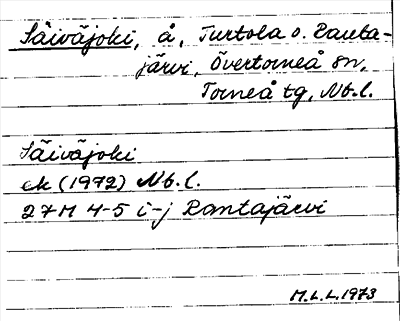 Säiväjoki, å, Turtola o. Ranta-
järvi, Övertorneå sn,
Torneå tg, Nb.l.
Säiväjoki
ek (1972) Nb.l.
27M 4-5 i-j Rantajärvi
M.L.L. 1973